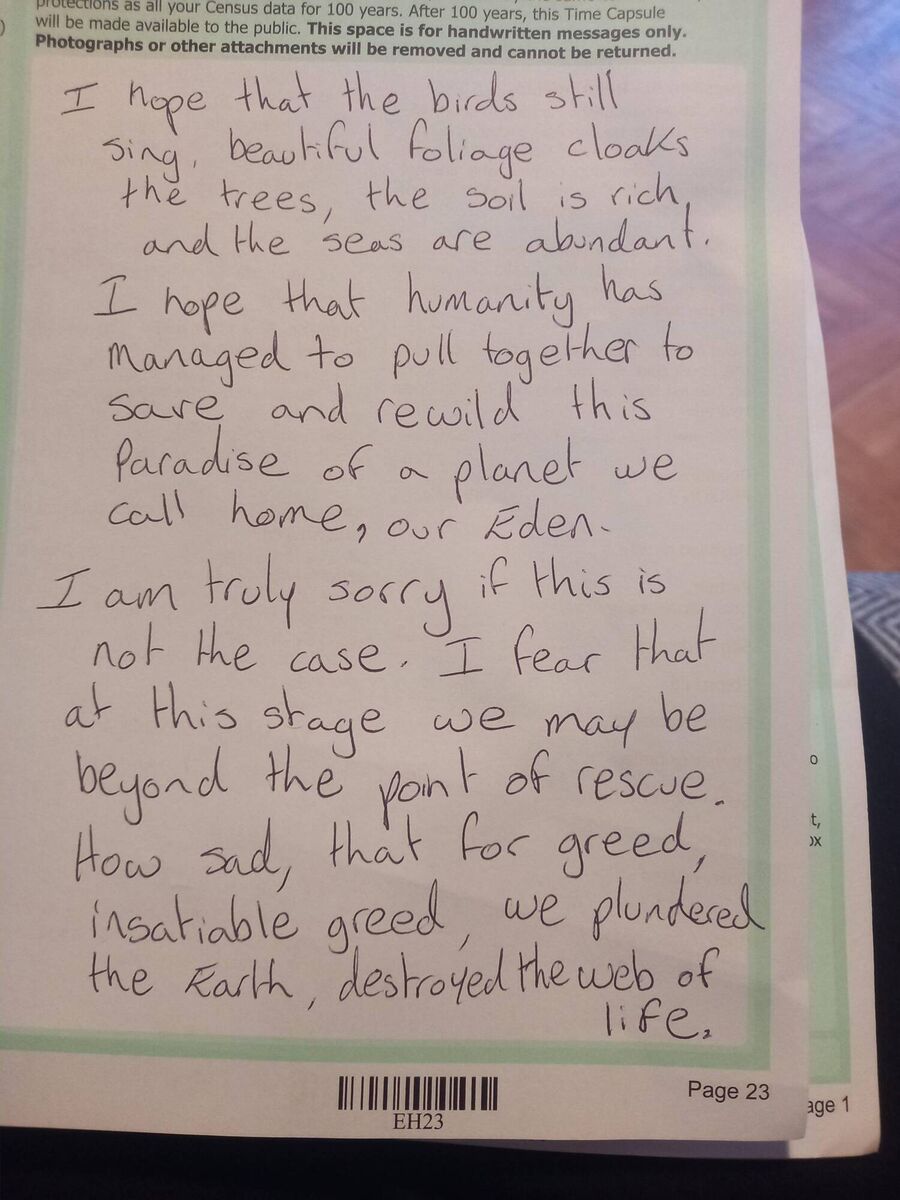 protections as all your Census data for 100 years. After 100 years, this Time Capsule
will be made available to the public. This space is for handwritten messages only.
Photographs or other attachments will be removed and cannot be returned.
I hope that the birds still
sing, beautiful foliage cloaks
the trees, the soil is rich,
and the seas are abundant.
I hope that humanity has
managed to pull together to
save and rewild this
Paradise of a planet we
call home, our Eden.
I am truly sorry if this is
not the case. I fear that
at this stage we may be
beyond the point of rescue.
How sad, that for greed,
insatiable greed, we plundered
the Earth, destroyed the web of
life.
EH23
Page 23
age 1
o
t,
ox